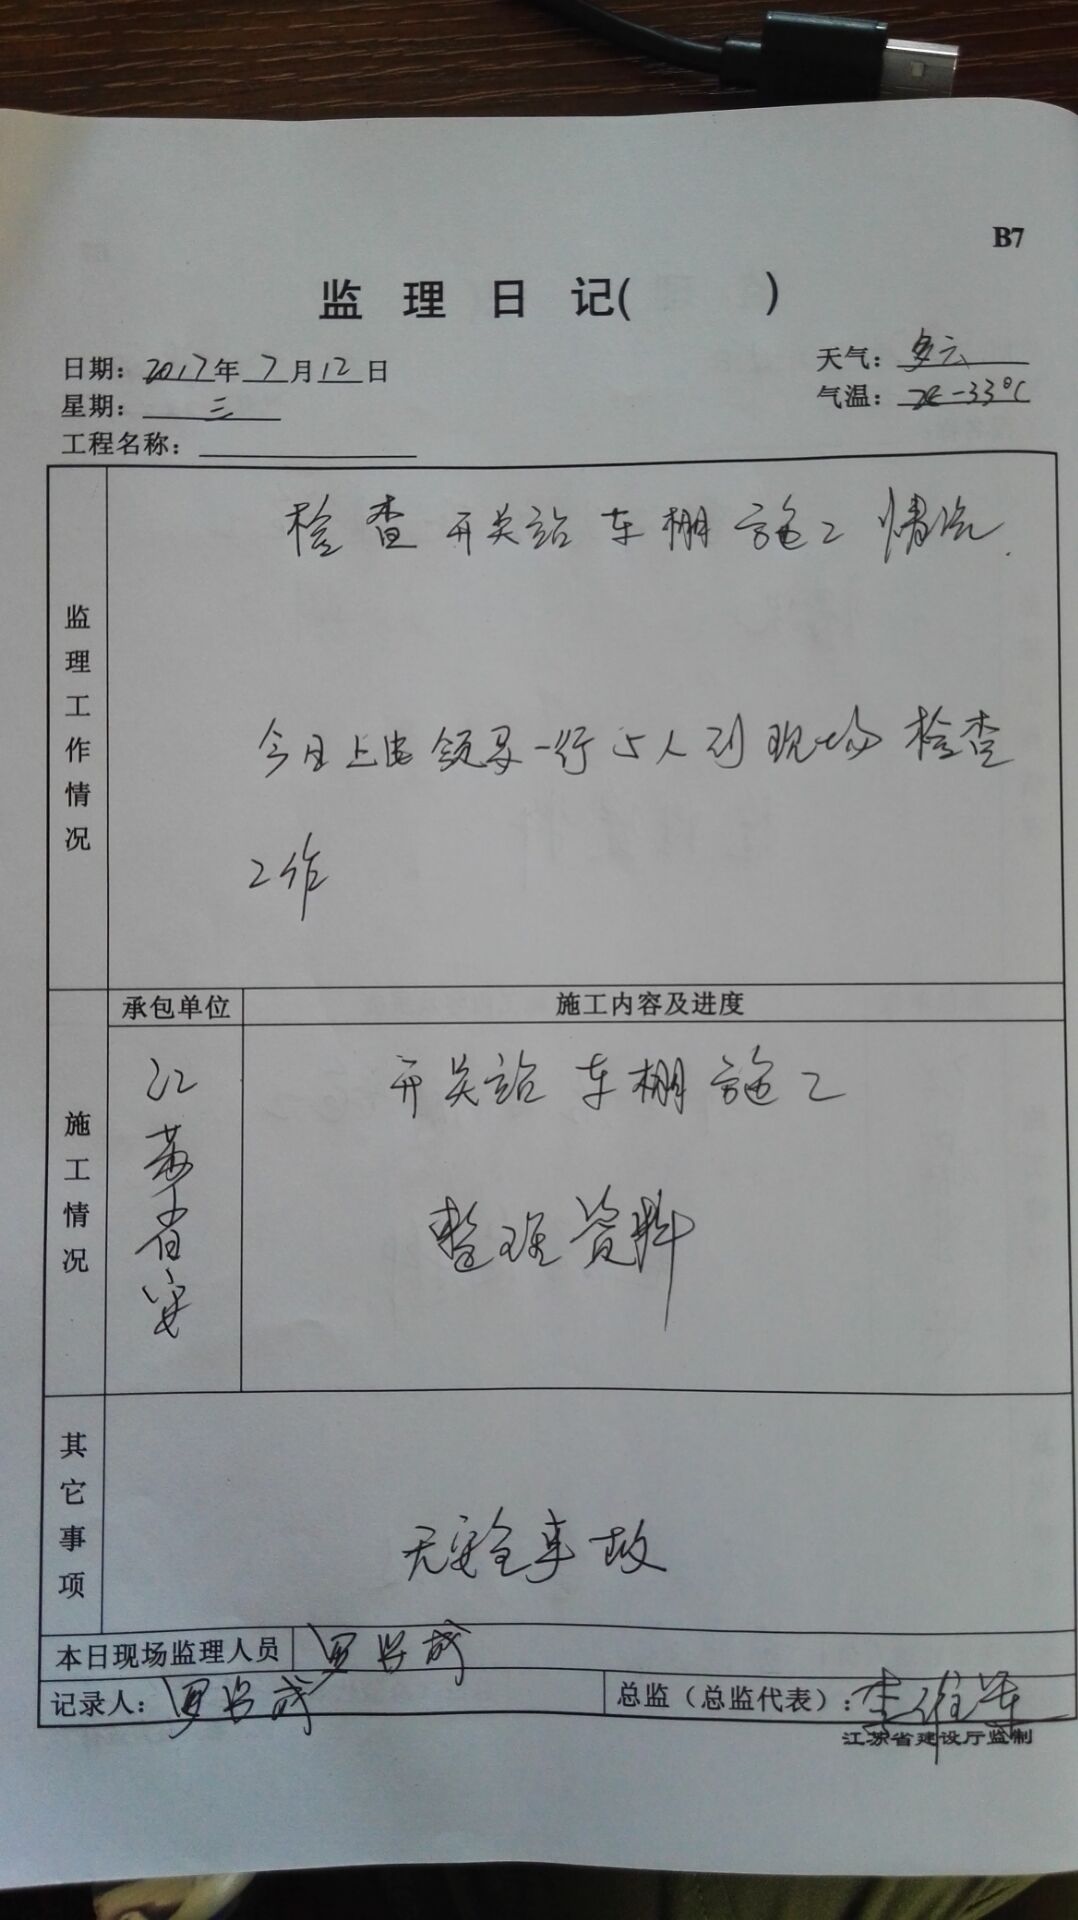 B7
监理日记( )
日期：2017年7月12日
天气：多云
星期：三
气温：-33℃
工程名称：
监理工作情况
检查开关站车棚施工情况.
今日上电领导一行5人到现场检查
工作
施工情况
承包单位
施工内容及进度
江苏省安
开关站车棚施工
整理资料
其它事项
无安全事故
本日现场监理人员
记录人：
总监（总监代表）：
江苏省建设厅监制